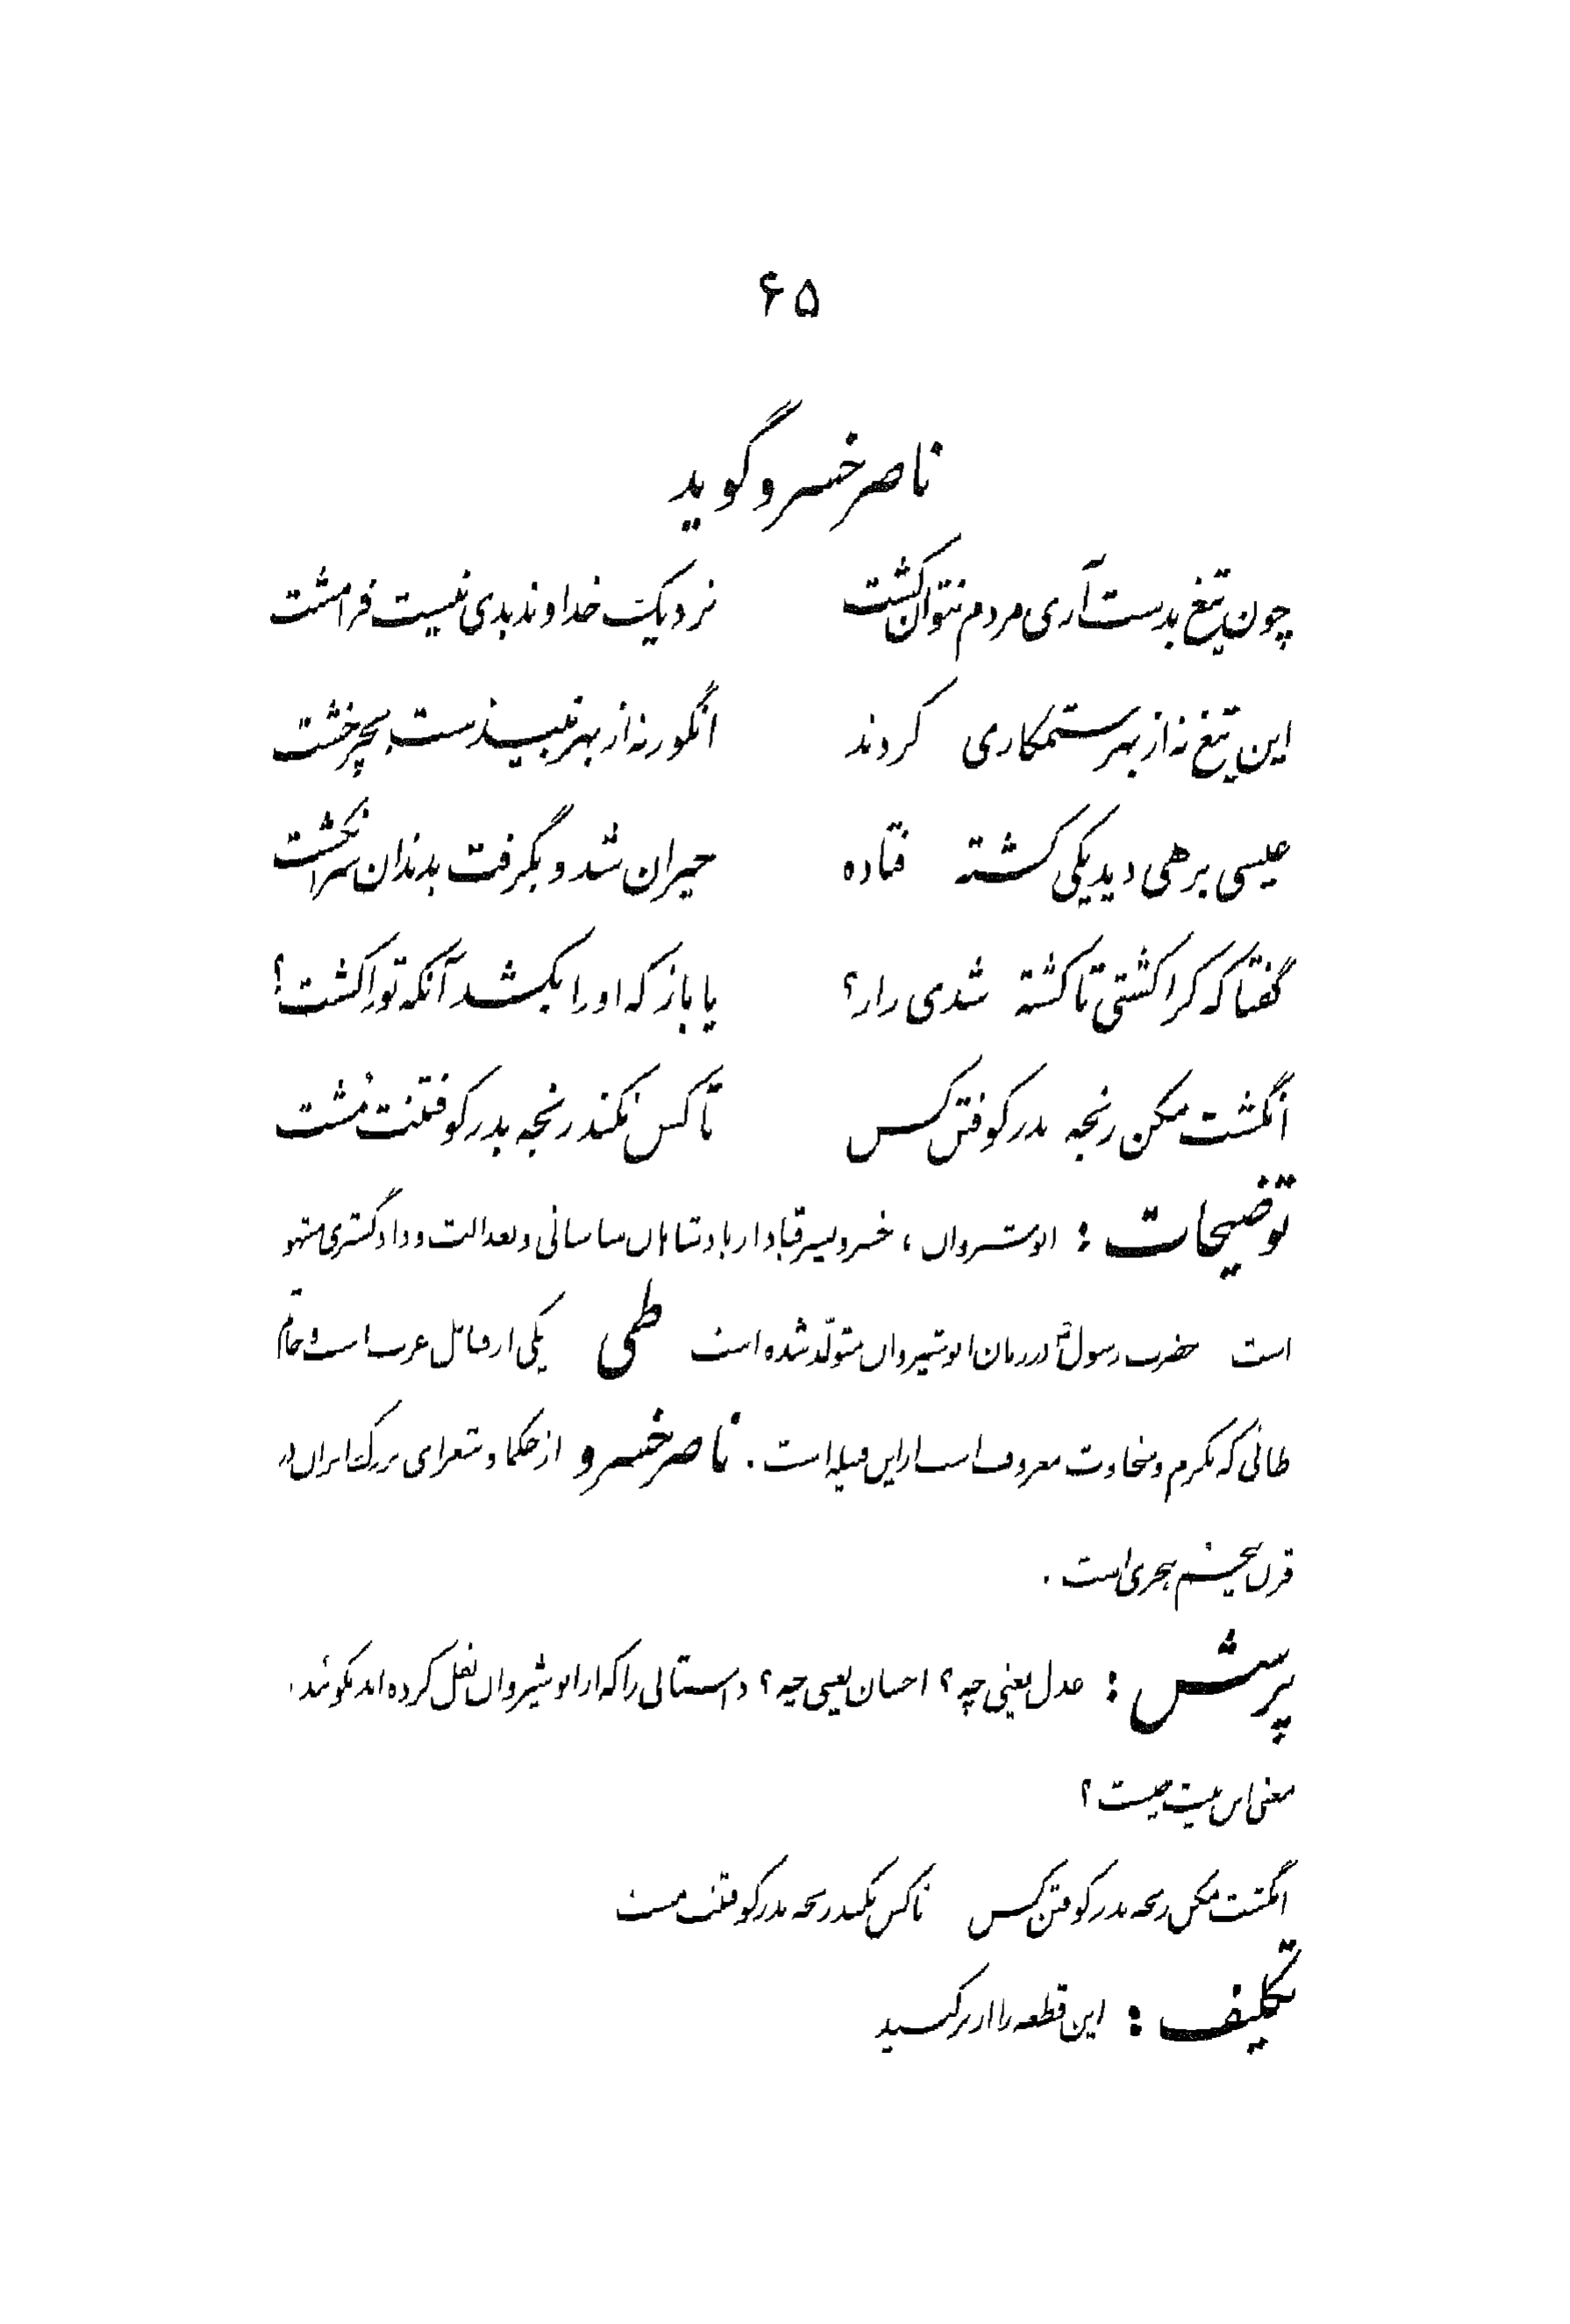 ۶۵
ناصر خسرو گوید
چون تیغ بدست آری مردم نتوان کشت نزدیک خداوند بدی نیست فرامشت
این تیغ نه از بهر ستمکاری کردند انگور نه از بهر نبیذست بچرخشت
عیسی برهی دید یکی کشته فتاده حیران شد و بگرفت بدندان سر انگشت
گفتا که کرا کشتی تا کشته شدی زار؟ یا باز که او را بکشد آنکه تو را کشت؟
انگشت مکن رنجه بدر کوفتن کس تا کس نکند رنجه بدر کوفتنت مُشت
توضیحات : انوشیروان ، خسرو پسر قباد از پادشاهان ساسانی و بعدالت و دادگستری مشهور
است حضرت رسول در زمان انوشیروان متولّد شده است طی یکی از قبائل عرب است و حاتم
طائی که بکرم و سخاوت معروف است از این قبیله است . ناصر خسرو از حکما و شعرای بزرگ ایران در
قرن پنجم هجری است .
پرسش : عدل یعنی چه ؟ احسان یعنی چه ؟ داستانی را که از انوشیروان نقل کرده اند بگوئید .
معنی این بیت چیست ؟
انگشت مکن رنجه بدر کوفتن کس تا کس نکند رنجه بدر کوفتنت مشت
تکلیف : این قطعه را از بر کنید